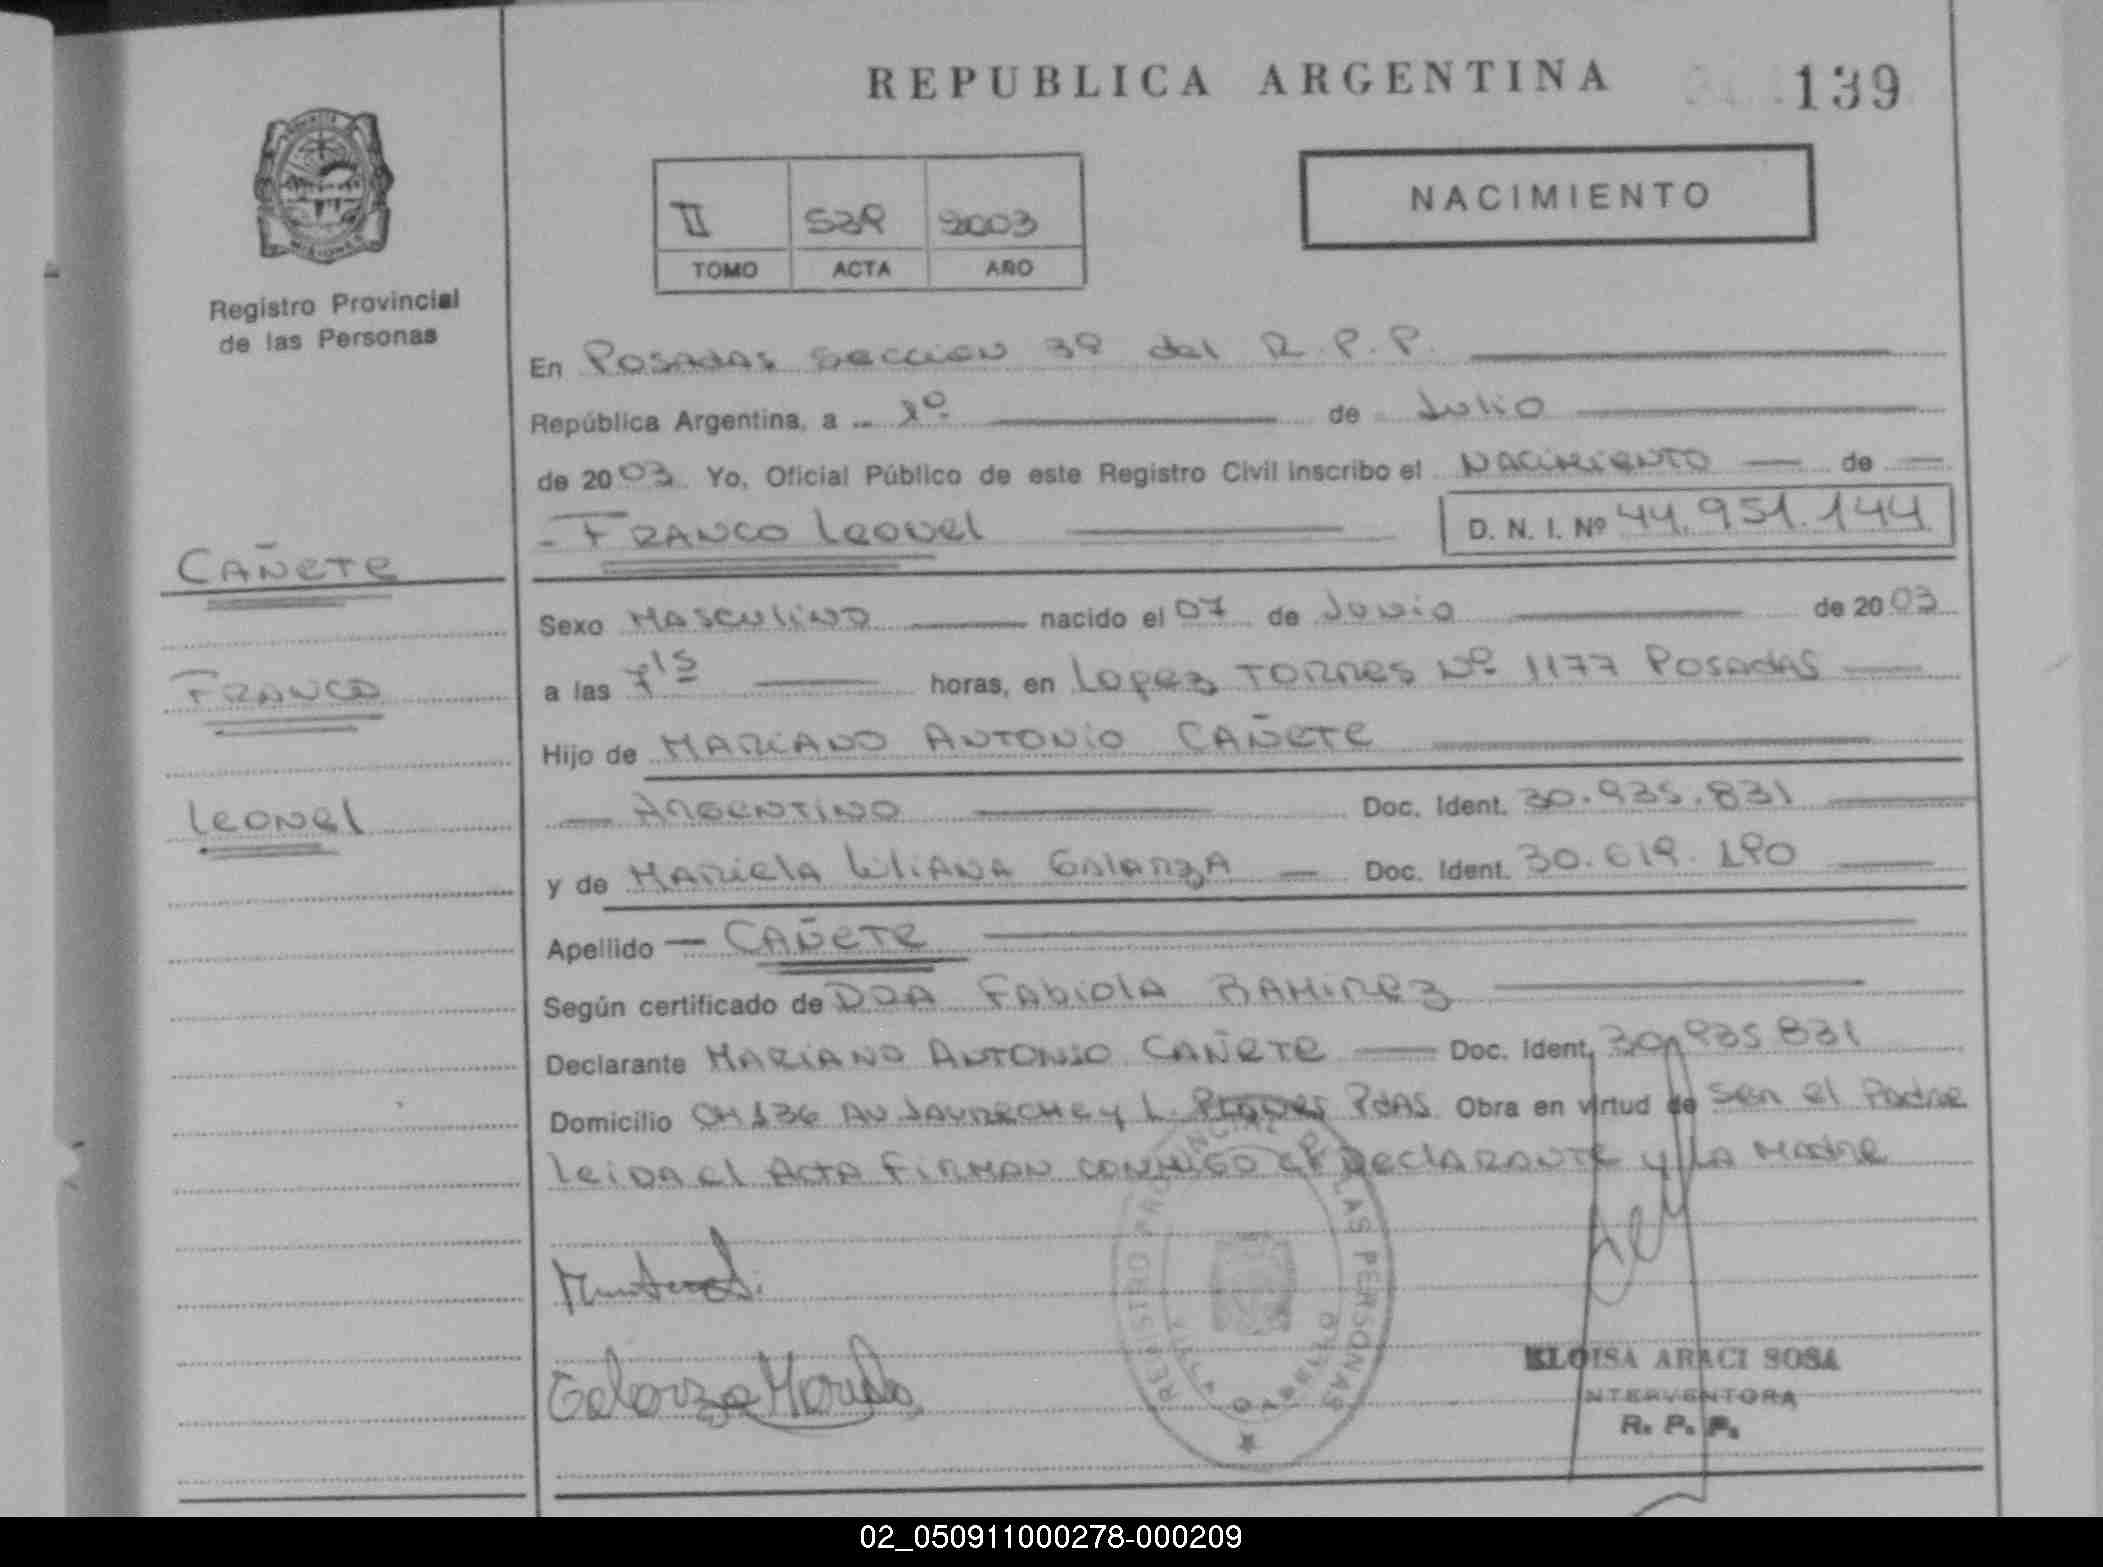 REPUBLICA ARGENTINA
139
NACIMIENTO
II 539 2003
TOMO ACTA AÑO
Registro Provincial
de las Personas
En Posadas Seccion 3º del R.P.P.
República Argentina, a 1º de Julio
de 2003. Yo, Oficial Público de este Registro Civil inscribo el Nacimiento de
Franco Leonel D. N. I. Nº 44.951.144
Cañete
Sexo Masculino nacido el 07 de Junio de 2003
Franco
a las 7 15 horas, en Lopez Torres Nº 1177 Posadas
Hijo de Mariano Antonio Cañete
Leonel
Argentino Doc. Ident. 30.935.831
y de Mariela Liliana Galarza Doc. Ident. 30.619.190
Apellido Cañete
Según certificado de DRA Fabiola Ramirez
Declarante Mariano Antonio Cañete Doc. Ident. 30.935.831
Domicilio CH 136 AV Jaureche y L. Pdas. Obra en virtud de Ser el Padre
Leida el Acta Firman conmigo el Declarante y la Madre
REGISTRO PROVINCIAL DE LAS PERSONAS
Galarza Mariela
ELOISA ARACI SOSA
INTERVENTORA
R. P. P.
02_050911000278-000209